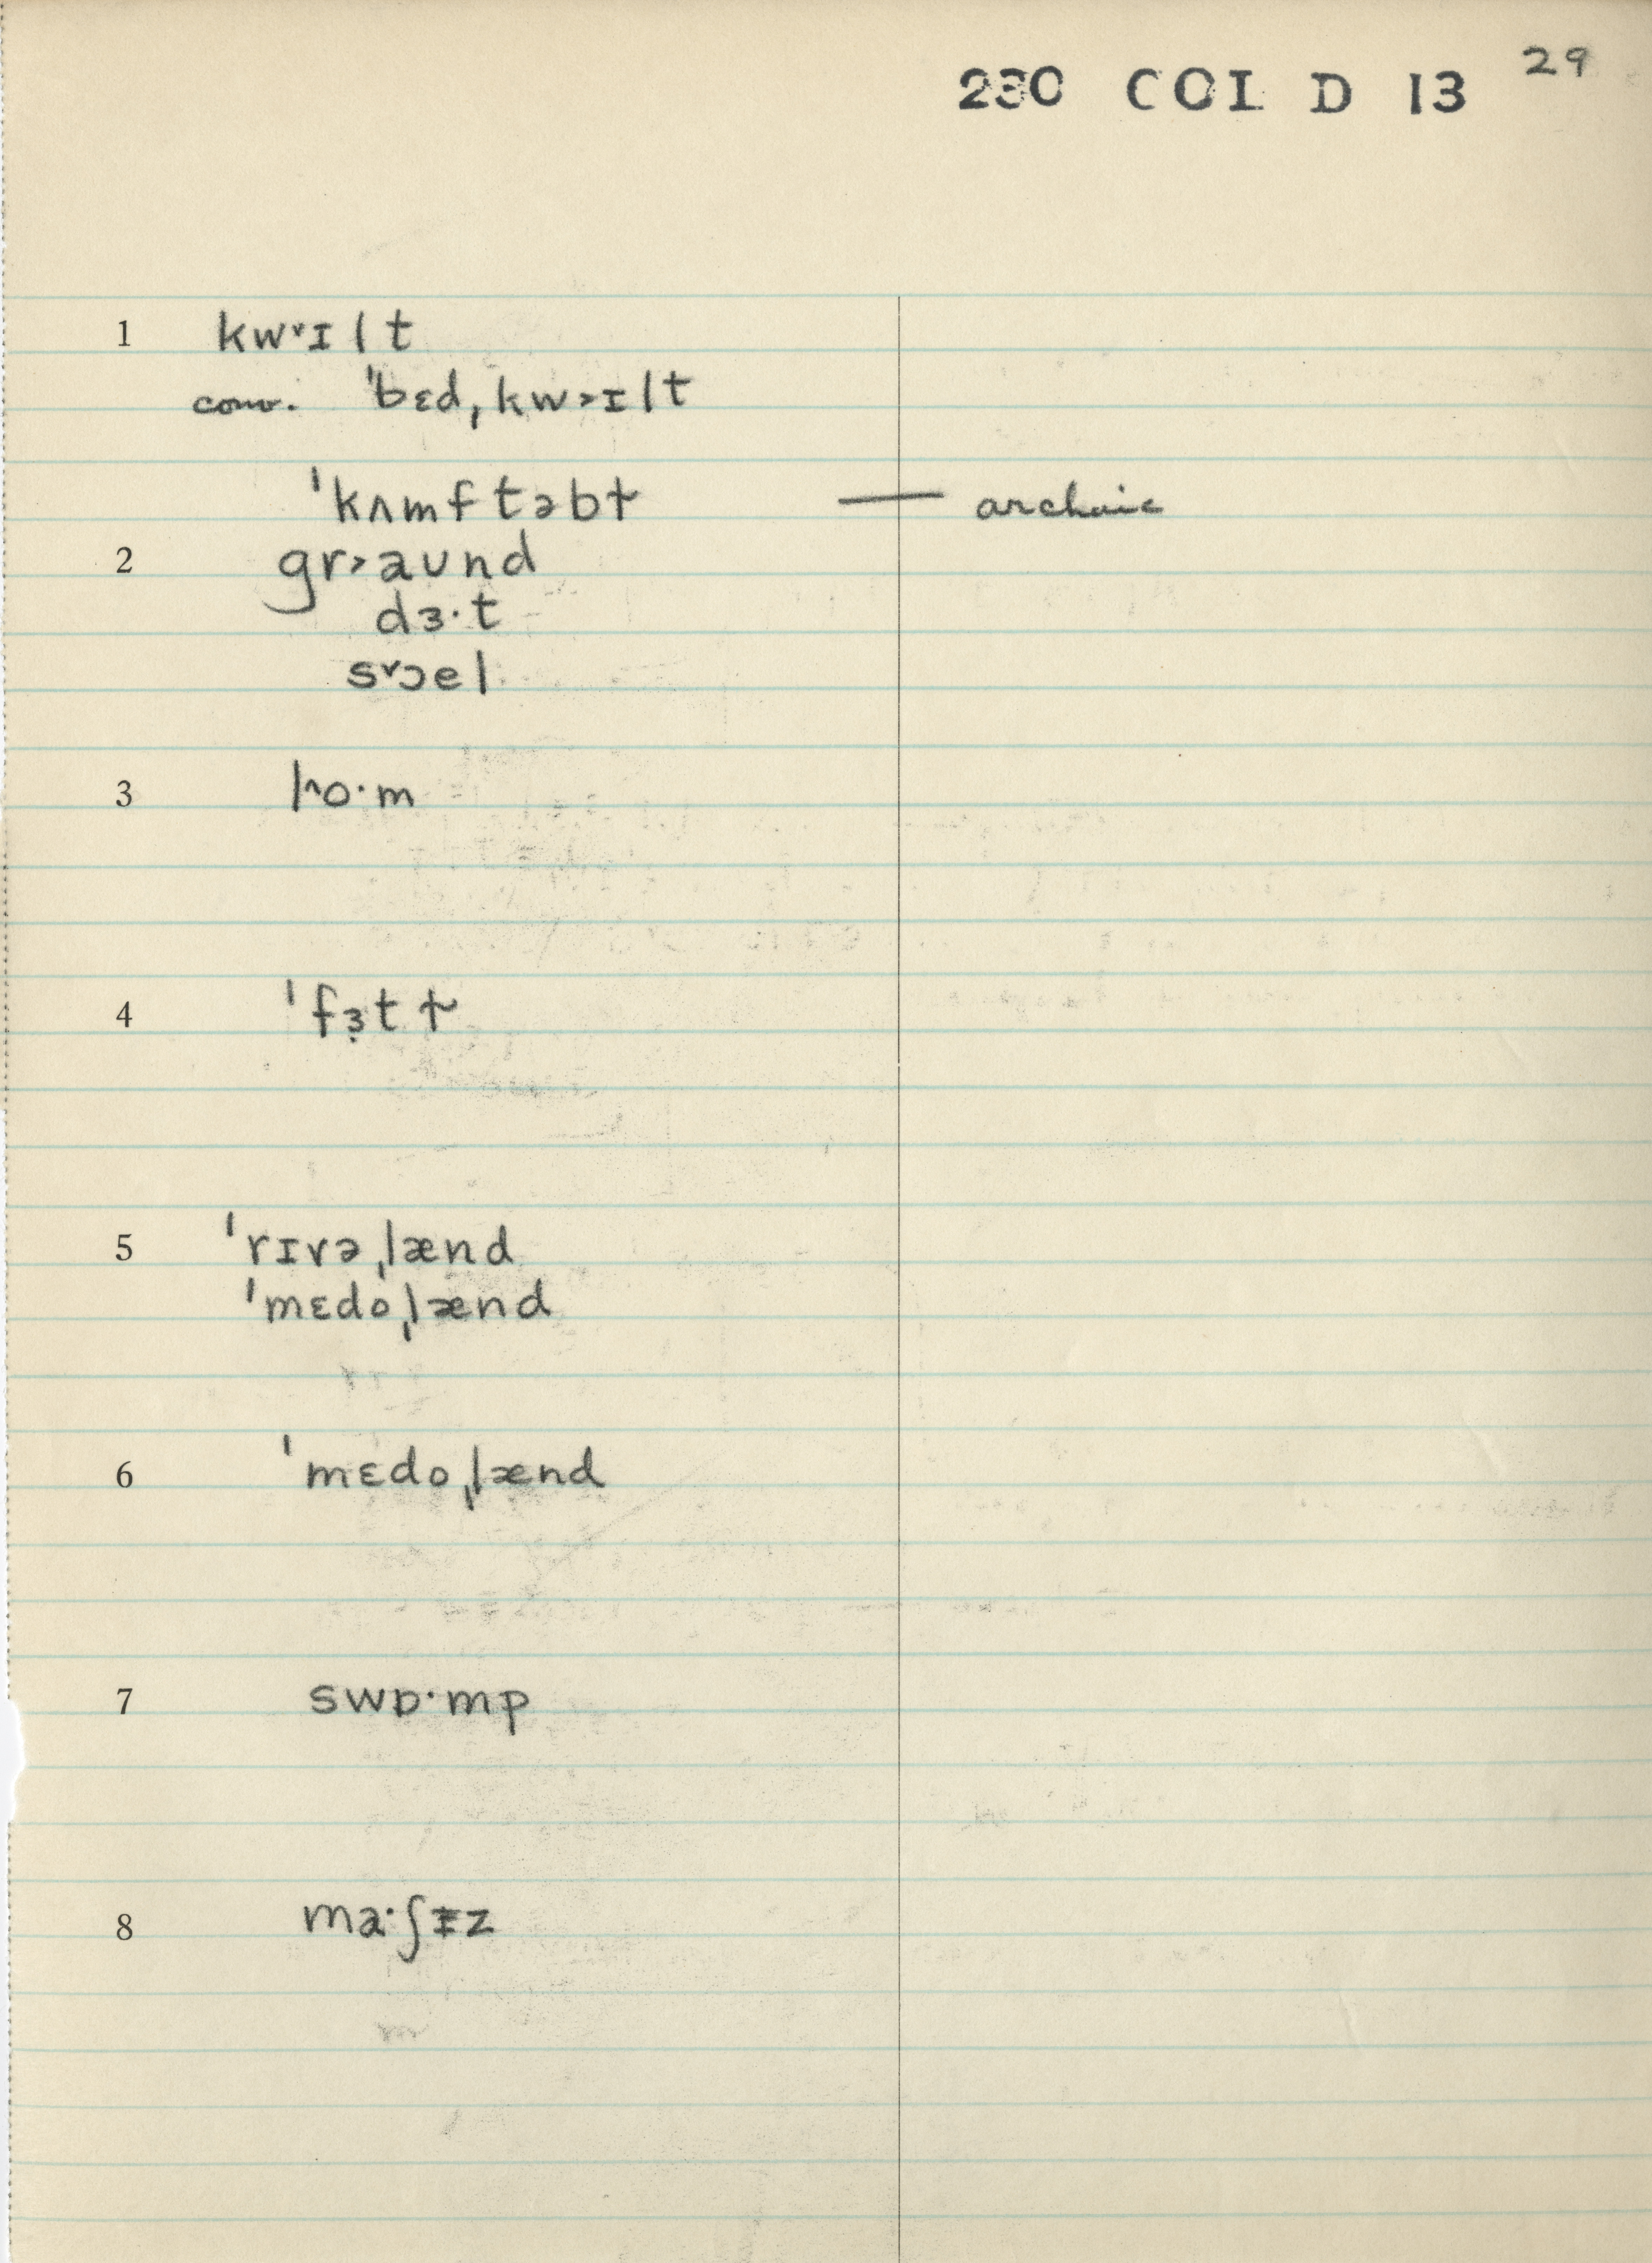 230 COL D 13 29
1 kw˅ɪlt
conv. ˈbɛd,kw˃ɪlt
ˈkʌmftəbɫ — archaic
2 gr˃aʊnd
dɜ·t
s˅ɔel
3 lo·m
4 ˈfɜ̣tɫ
5 ˈrɪvə,lænd
ˈmɛdo,lænd
6 ˈmɛdo,lænd
7 swɒ·mp
8 ma·ʃɪ̵z